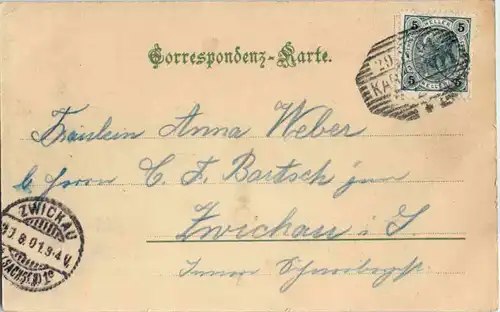 Correspondenz-Karte.
5 HELLER 5
5 5
Fräulein Anna Weber
b/ Herrn C. F. Bartsch jun
Zwickau i. S.
Innere
ZWICKAU
8.01.3-4 V.
(SACHSEN)